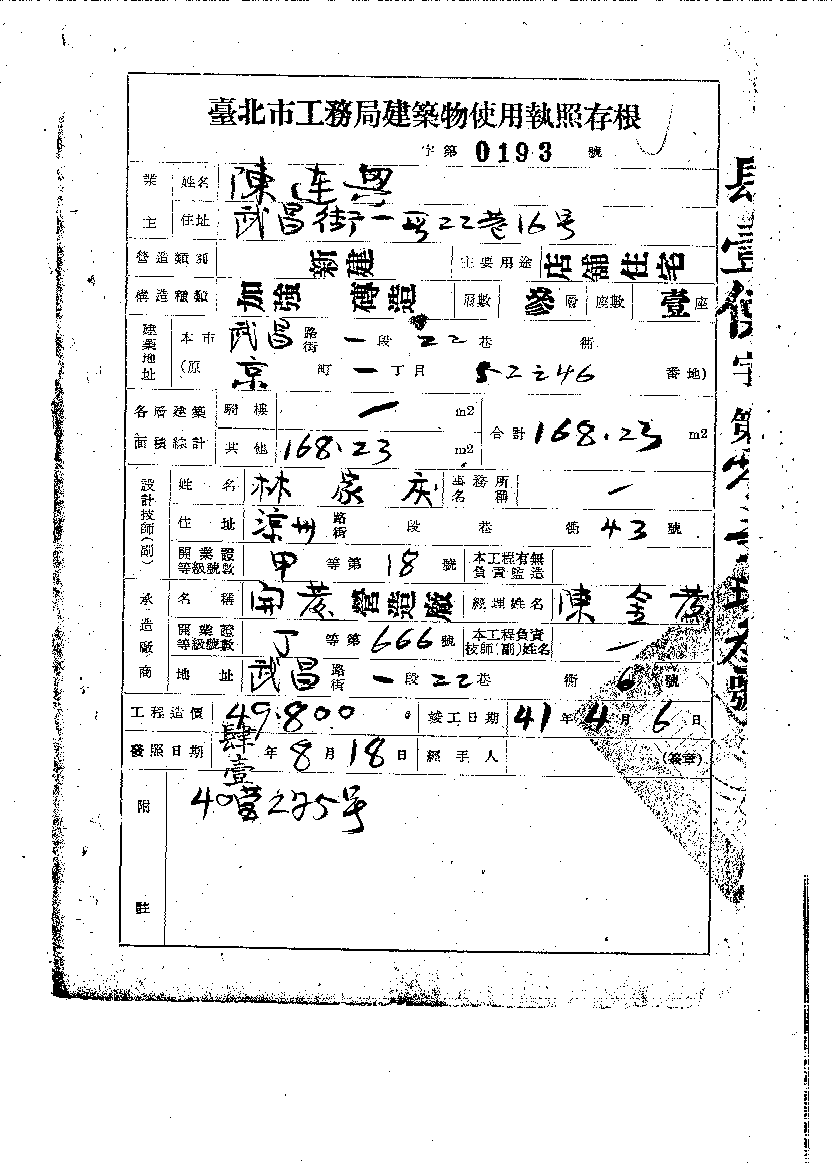 臺北市工務局建築物使用執照存根
字第 0193 號
業主 姓名 陳連興
住址 武昌街一段22巷16号
營造類別 新建 主要用途 店舖住宅
構造種類 加強磚造 層數 參層 座數 壹座
建築地址 本市 武昌 路街 一段 22巷 衖
(原 京 町 一丁目 52之46 番地)
各層建築面積綜計 騎樓 一 m2 合計 168.23 m2
其他 168.23 m2
設計技師(副) 姓名 林家 事務所名稱 一
住址 涼州 路街 段 巷 衖 43 號
開業證等級號數 甲 等第 18 號 本工程有無負責監造
承造廠商 名稱 開 營造廠 經理姓名 陳金
開業證等級號數 丁 等第 666 號 本工程負責技師(副)姓名 一
地址 武昌 路街 一段 22巷 衖 6 號
工程造價 49.800。 竣工日期 41年4月6日
發照日期 肆壹年8月18日 經手人 (簽章)
附註 40營275号
壹使字第